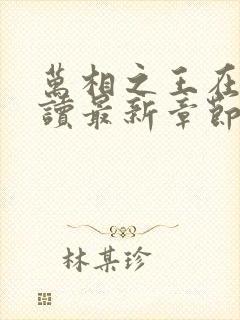 萬相之王在
讀最新章節
林某珍